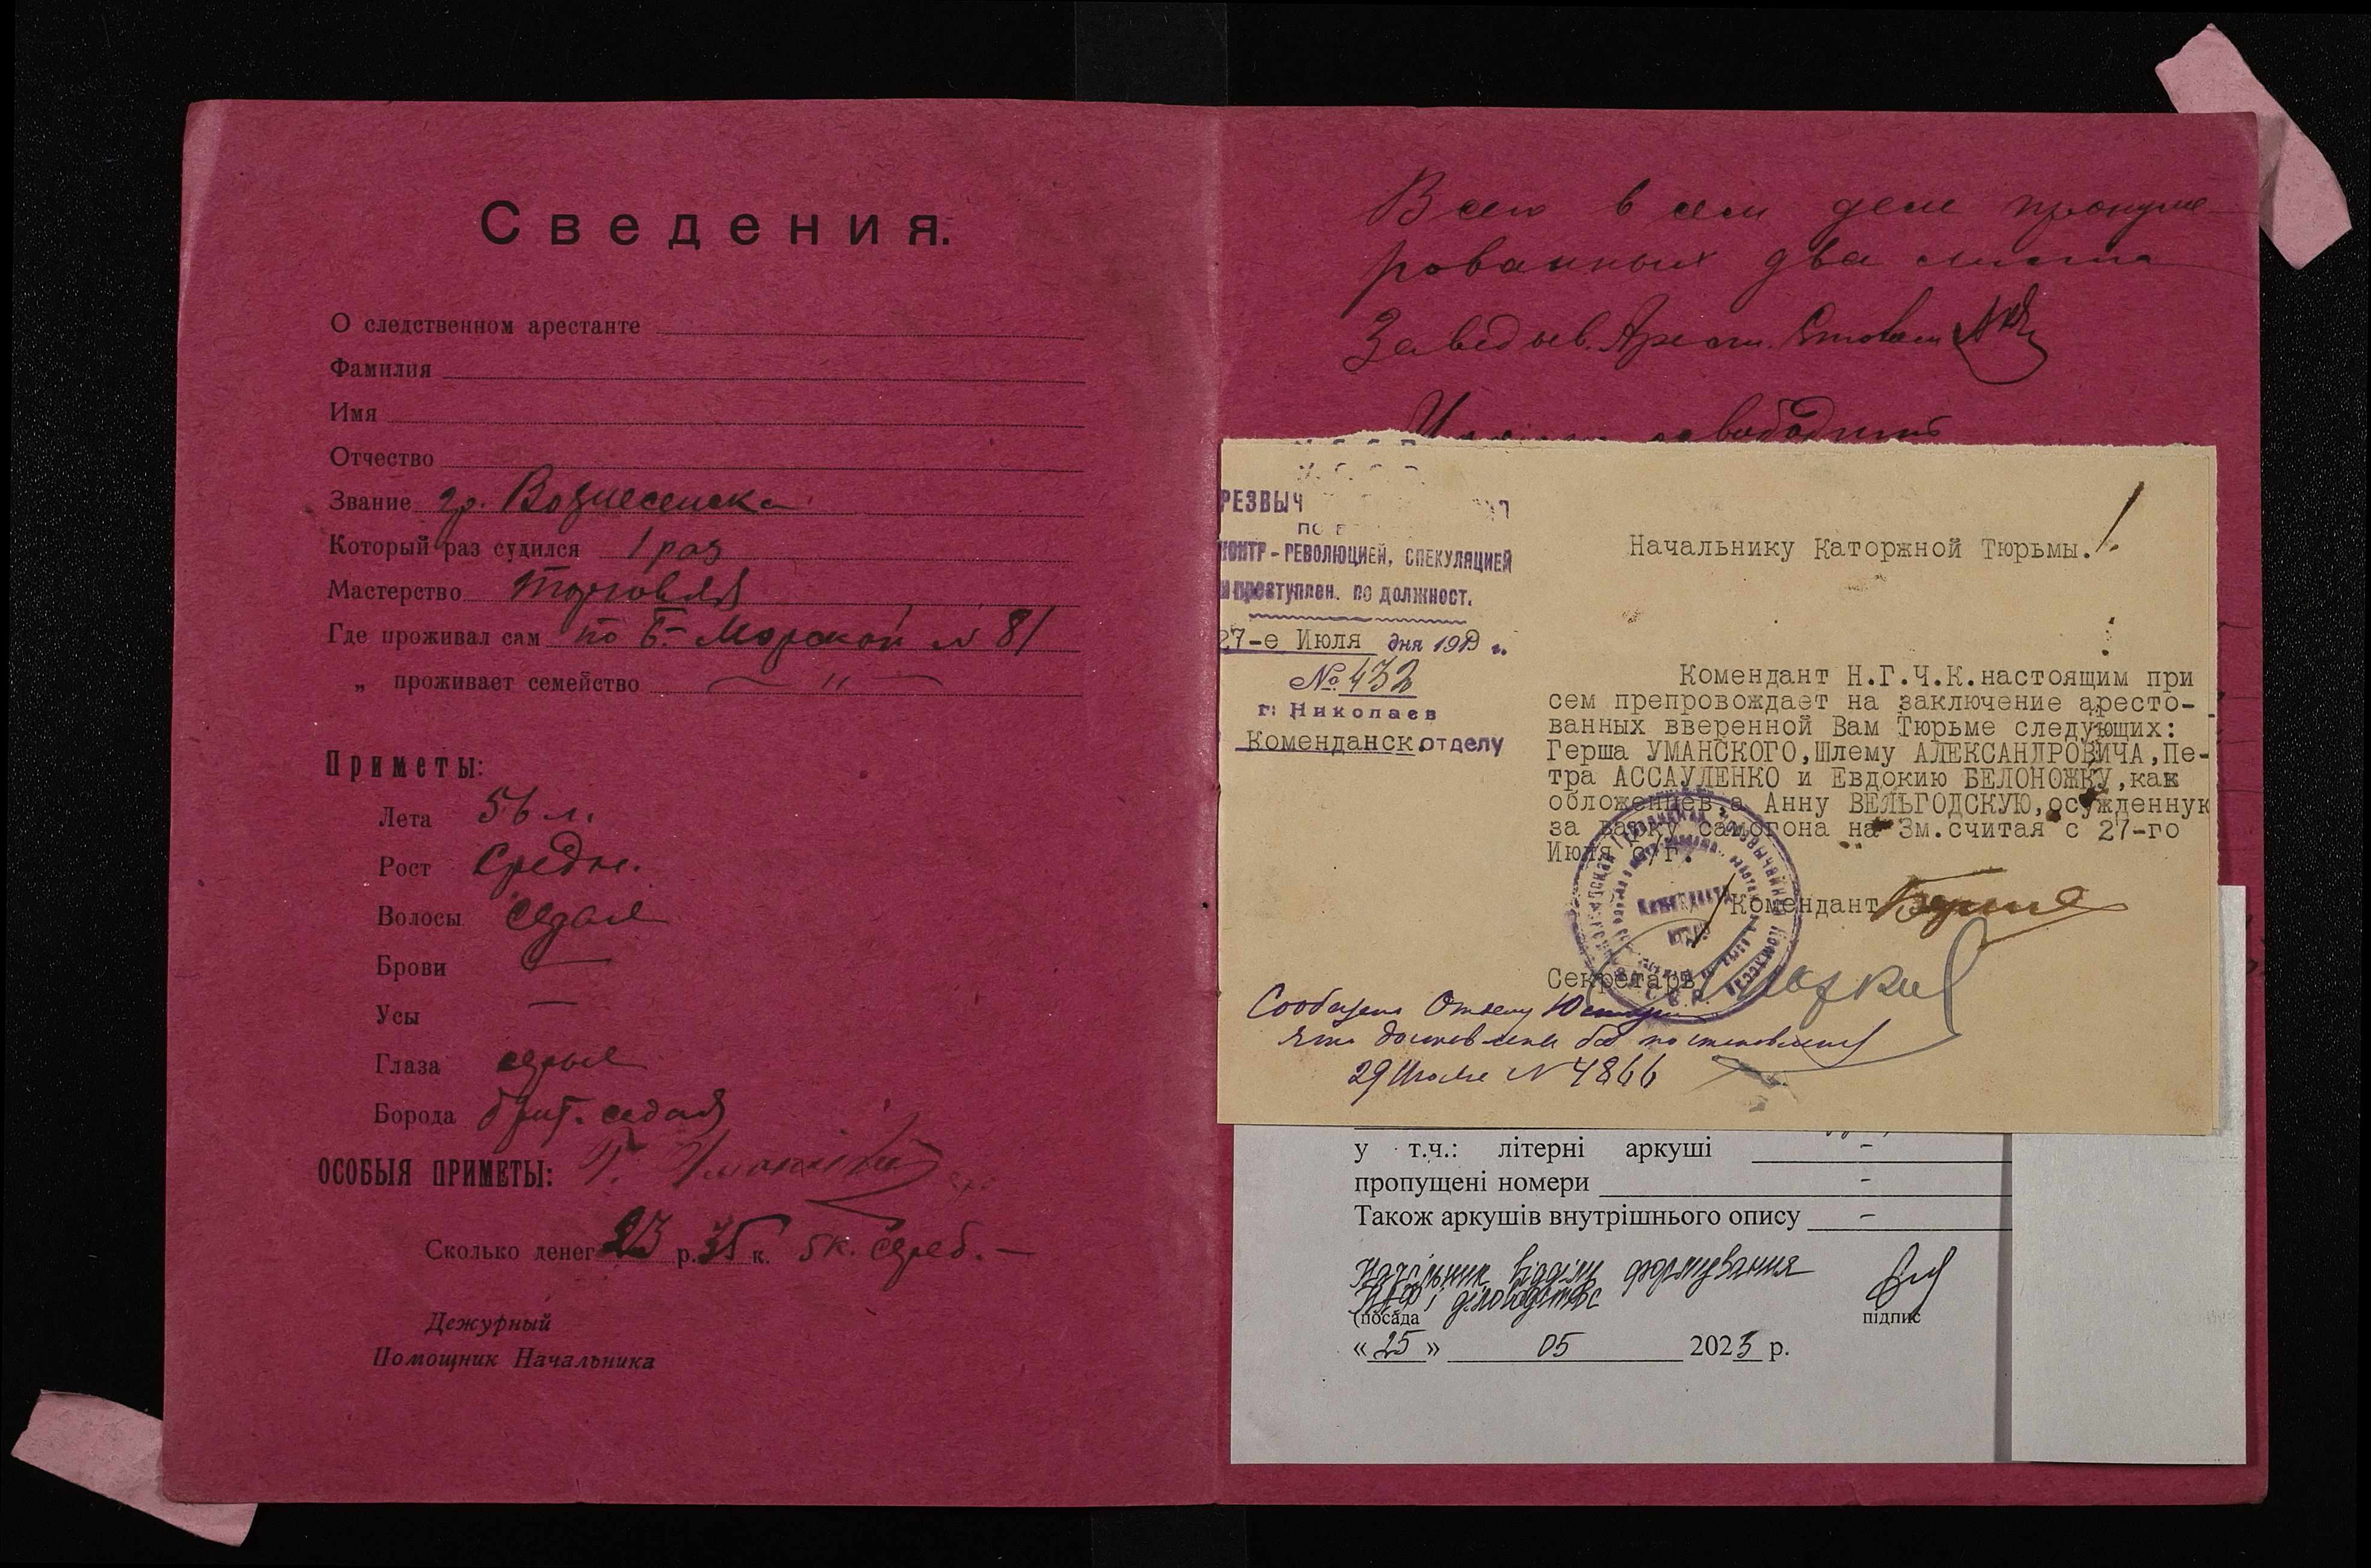 Сведения.
О следственном арестанте
Фамилия
Имя
Отчество
Звание гр. Вознесенска
Который раз судился 1 раз
Мастерство торговля
Где проживал сам по Б. Морской № 81
„ проживает семейство — " —
Приметы:
Лета 56 л.
Рост средн.
Волосы седые
Брови —
Усы —
Глаза серые
Борода брит. седая
ОСОБЫЯ ПРИМЕТЫ: Г. Уманский
Сколько денег 23 р. 35 к. 5 к. сереб. —
Дежурный
Помощник Начальника
Всего в сем деле пронуме-
рованных два листа
Заведыв. Арест. Столом
РЕЗВЫЧ
ПО
КОНТР-РЕВОЛЮЦИЕЙ, СПЕКУЛЯЦИЕЙ
и преступлен. по должност.
27-е Июля дня 1919 г.
№ 432
г. Николаев
Коменданск. отделу
Начальнику Каторжной Тюрьмы.
Комендант Н.Г.Ч.К.настоящим при
сем препровождает на заключение аресто-
ванных вверенной Вам Тюрьме следующих:
Герша УМАНСКОГО,Шлему АЛЕКСАНДРОВИЧА,Пе-
тра АССАУЛЕНКО и Евдокию БЕЛОНОЖКУ,как
обложенцев,а Анну ВЕЛЬГОДСКУЮ,осужденную
за варку самогона на 3м.считая с 27-го
Июля с/г.
Комендант
Секретарь
Сообщено Отделу Юстиции
что доставлены без постановления
29 Июля № 4866
у т.ч.: літерні аркуші -
пропущені номери -
Також аркушів внутрішнього опису -
Начальник відділу формування
НАФ і діловодства
(посада підпис
«25» 05 2023 р.